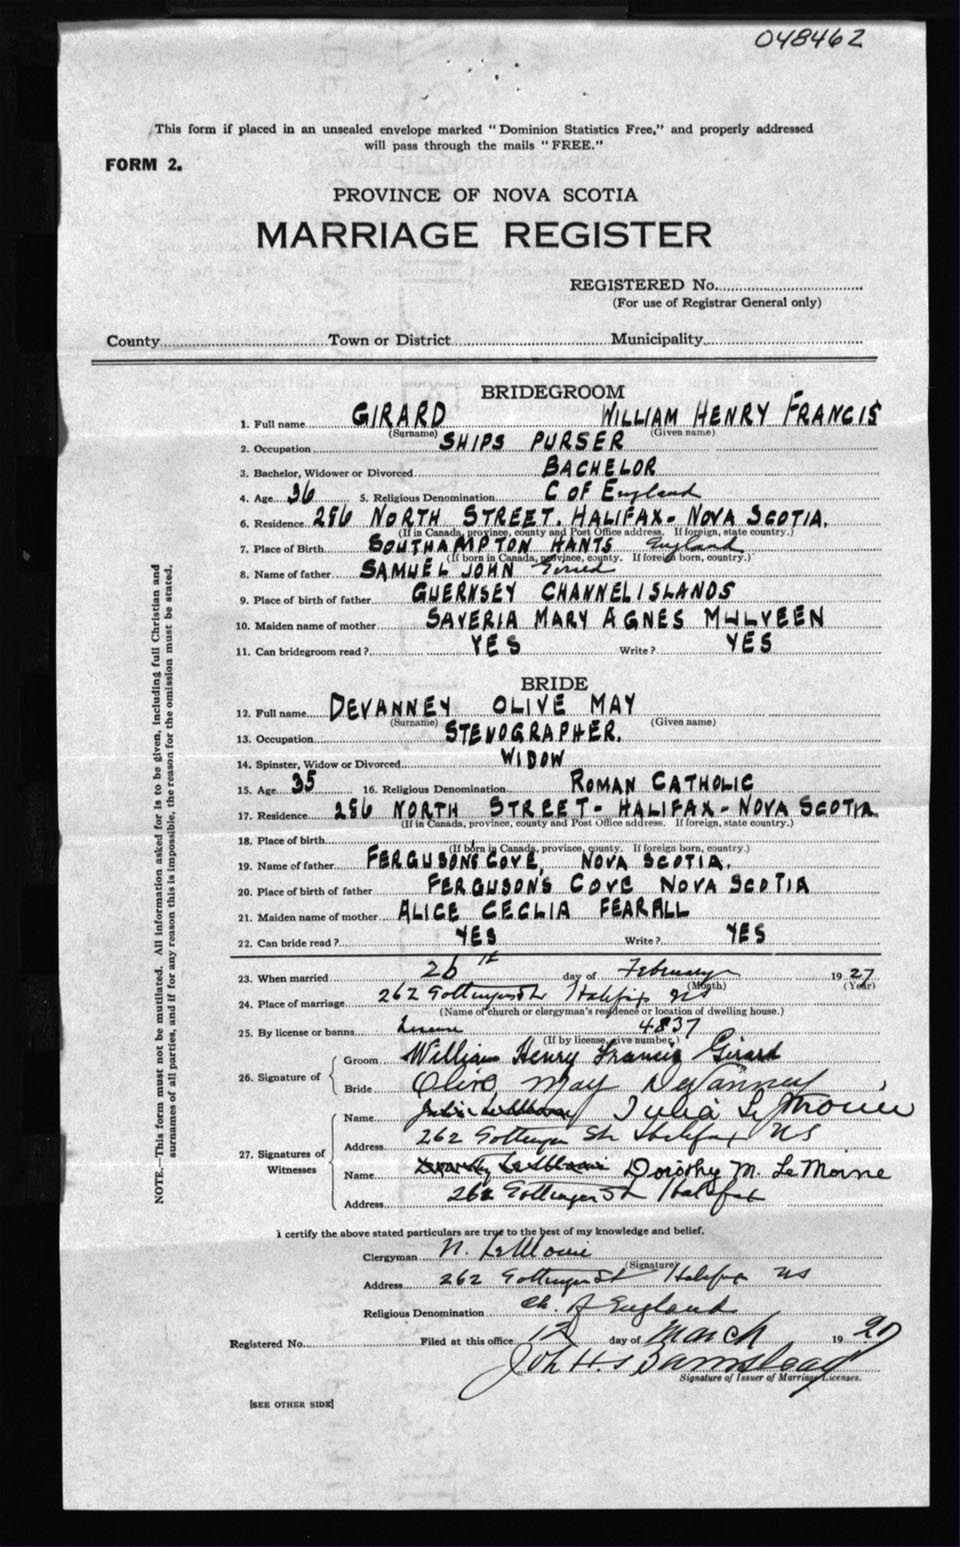 048462
This form if placed in an unsealed envelope marked "Dominion Statistics Free," and properly addressed
will pass through the mails "FREE."
FORM 2.
PROVINCE OF NOVA SCOTIA
MARRIAGE REGISTER
REGISTERED No.
(For use of Registrar General only)
County Town or District Municipality
BRIDEGROOM
1. Full name GIRARD WILLIAM HENRY FRANCIS
(Surname) (Given name)
2. Occupation SHIPS PURSER
3. Bachelor, Widower or Divorced BACHELOR
4. Age 36 5. Religious Denomination C OF England
6. Residence 286 NORTH STREET. HALIFAX - NOVA SCOTIA.
(If in Canada, province, county and Post Office address. If foreign, state country.)
7. Place of Birth SOUTHAMPTON HANTS England
(If born in Canada, province, county. If foreign born, country.)
8. Name of father SAMUEL JOHN
9. Place of birth of father GUERNSEY CHANNEL ISLANDS
10. Maiden name of mother SAVERIA MARY AGNES MULVEEN
11. Can bridegroom read? YES Write? YES
BRIDE
12. Full name DEVANNEY OLIVE MAY
(Surname) (Given name)
13. Occupation STENOGRAPHER.
14. Spinster, Widow or Divorced WIDOW
15. Age 35 16. Religious Denomination ROMAN CATHOLIC
17. Residence 286 NORTH STREET - HALIFAX - NOVA SCOTIA
(If in Canada, province, county and Post Office address. If foreign, state country.)
18. Place of birth
(If born in Canada, province, county. If foreign born, country.)
19. Name of father FERGUSON'S COVE, NOVA SCOTIA.
20. Place of birth of father FERGUSON'S COVE NOVA SCOTIA
21. Maiden name of mother ALICE CECLIA FEARALL
22. Can bride read? YES Write? YES
23. When married 26 day of February 1927
(Month) (Year)
24. Place of marriage 262 Gottingen St Halifax NS
(Name of church or clergyman's residence or location of dwelling house.)
25. By license or banns License 4837
(If by license, give number.)
26. Signature of
Groom William Henry Francis Girard
Bride Olive May Devanney
27. Signatures of Witnesses
Name Julia LeMoine
Address 262 Gottingen St Halifax NS
Name Dorothy M. LeMoine
Address 262 Gottingen St Halifax
I certify the above stated particulars are true to the best of my knowledge and belief.
Clergyman N. LeMoine
(Signature)
Address 262 Gottingen St Halifax NS
Religious Denomination Ch. of England
Registered No. Filed at this office 12 day of March 1927
Signature of Issuer of Marriage Licenses.
[SEE OTHER SIDE]
NOTE.—This form must not be mutilated. All information asked for is to be given, including full Christian and
surnames of all parties, and if for any reason this is impossible, the reason for the omission must be stated.